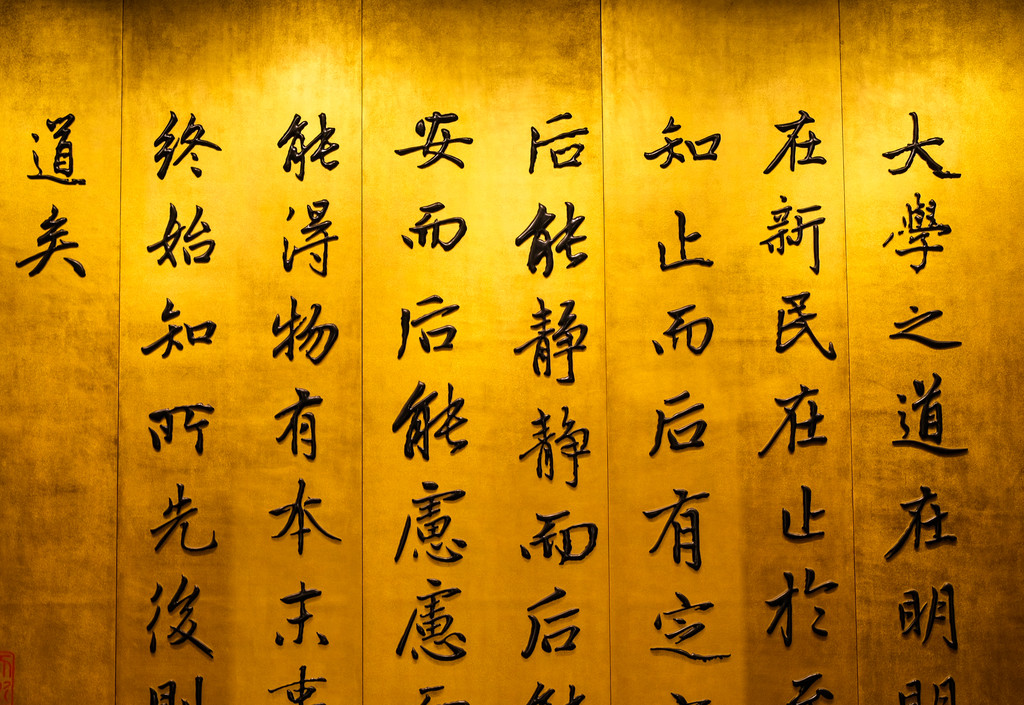 大學之道在明明
在新民在止於至
知止而后有定
后能靜靜而后能
安而后能慮慮而
能得物有本末事
終始知所先後則
道矣